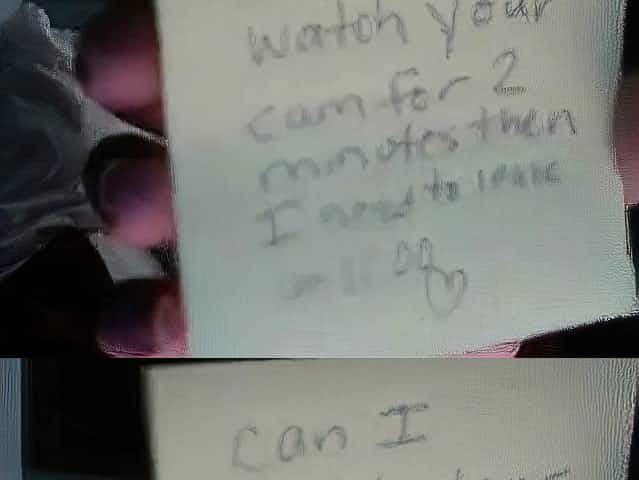 watch your
cam for 2
minutes then
I need to leave
Can I